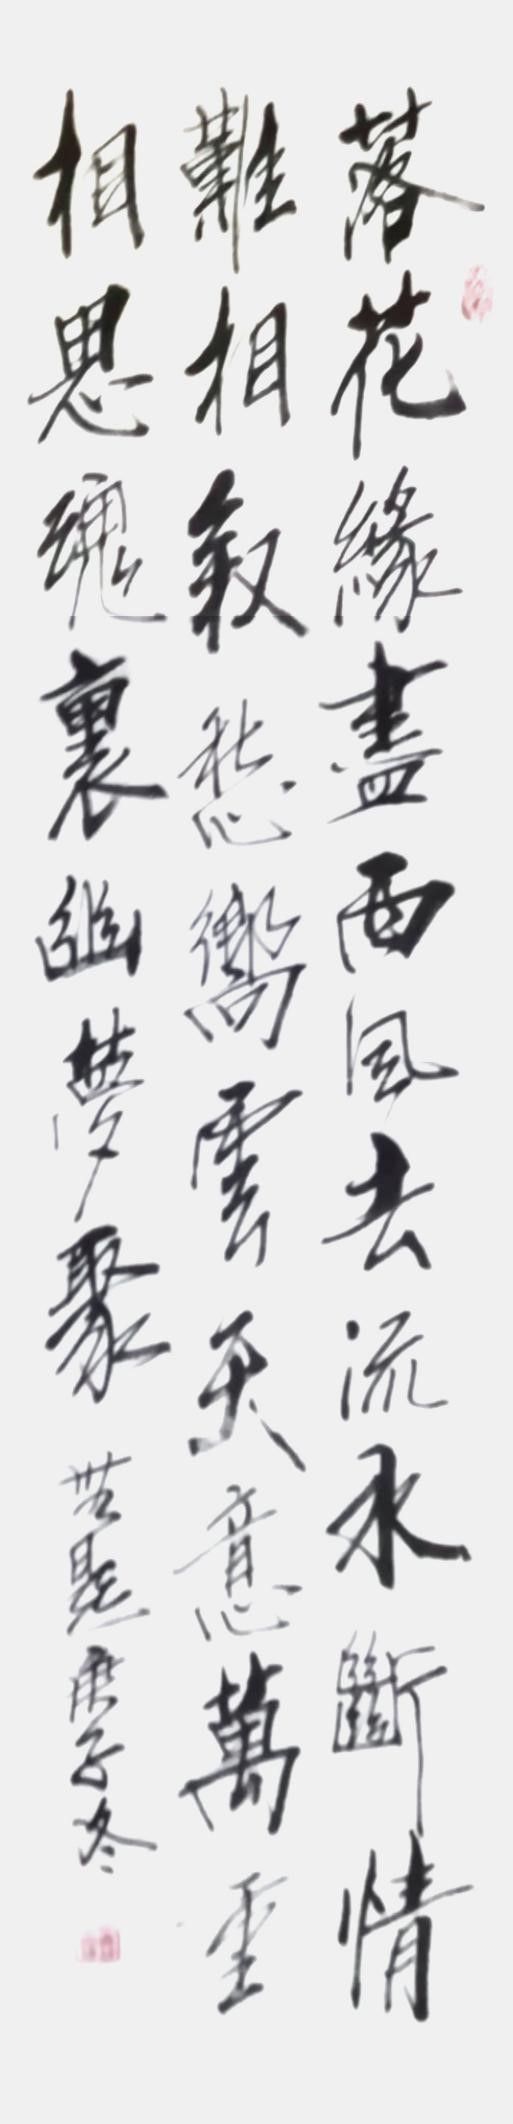 落花緣盡西風去流水斷情
難相敘愁嚮雲天意萬重
相思魂裏幽夢聚
無題庚子冬